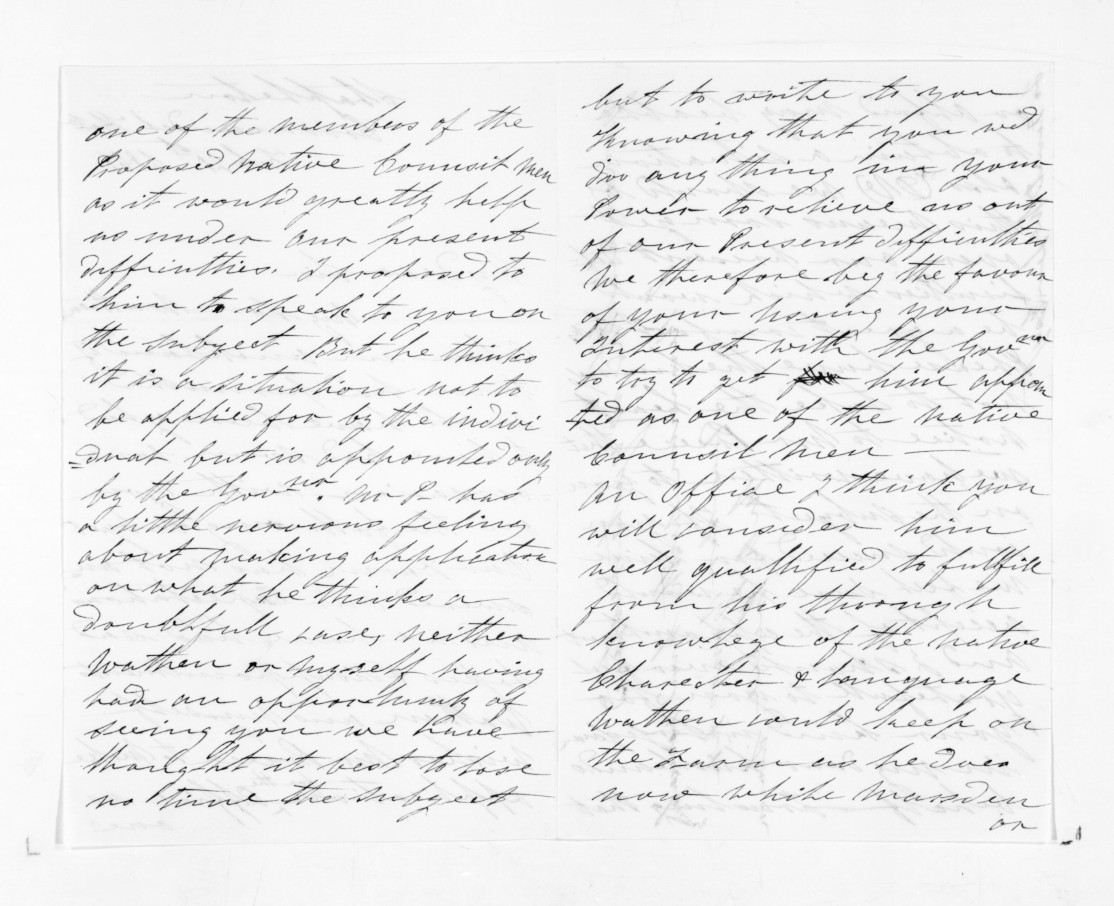 one of the members of the
Proposed Native Counsil Men
as it would greatly help
us under our present
difficulties. I proposed to
him to speak to you on
the subgect But he thinks
it is a situation not to
be applied for by the indivi
=dual but is appointed only
by the Govnno. Mr P- has
a little nervious feeling
about making application
on what he thinks a
doubtfull case, neither
Wathen or myself having
had an opportunity of
seeing you we have
thought it best to lose
no time the subgect
but to write to you
Knowing that you wd
doo any thing in your
Power to relieve us out
of our Present difficulties
We therefore beg the favour
of your useing your
Interest with the Govnnr
to try to get him appoin
ted as one of the native
Counsil Men —
An Office I think you
will consider him
well quallified to fullfill
from his through
knowlege of the native
Charecter & language
Wathen could keep on
the Farm as he does
now while Marsden
or